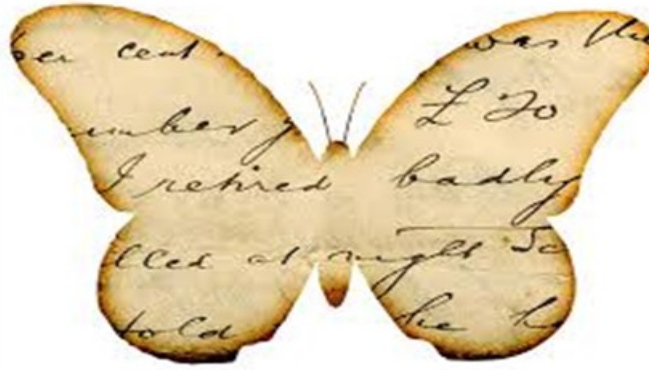 per cent was the
umber £ 20
I retired badly
lled at night Sc
told he h